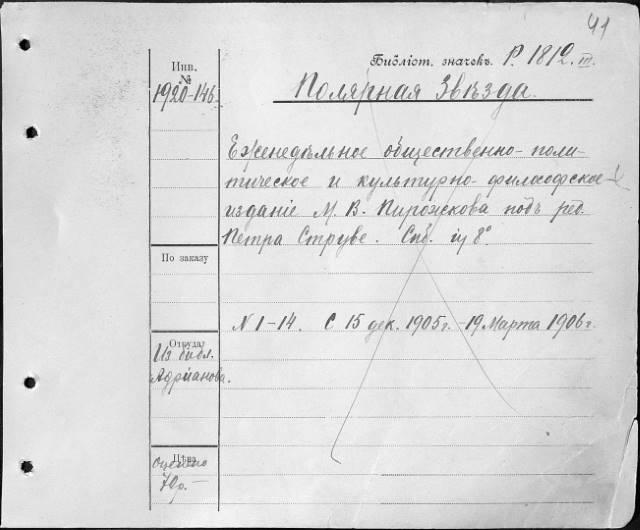 41
Библіот. значекъ. Р. 1812. III.
Инв.
№
1920-146
Полярная Звѣзда.
Еженедѣльное общественно-поли-
тическое и культурно-философское
изданіе М. В. Пирожкова подъ ред.
Петра Струве. Спб. in 8°
По заказу
N 1-14. С 15 дек. 1905 г. - 19 Марта 1906 г.
Откуда:
Из библ.
Адрианова.
Цѣна
оценено
70 р. –